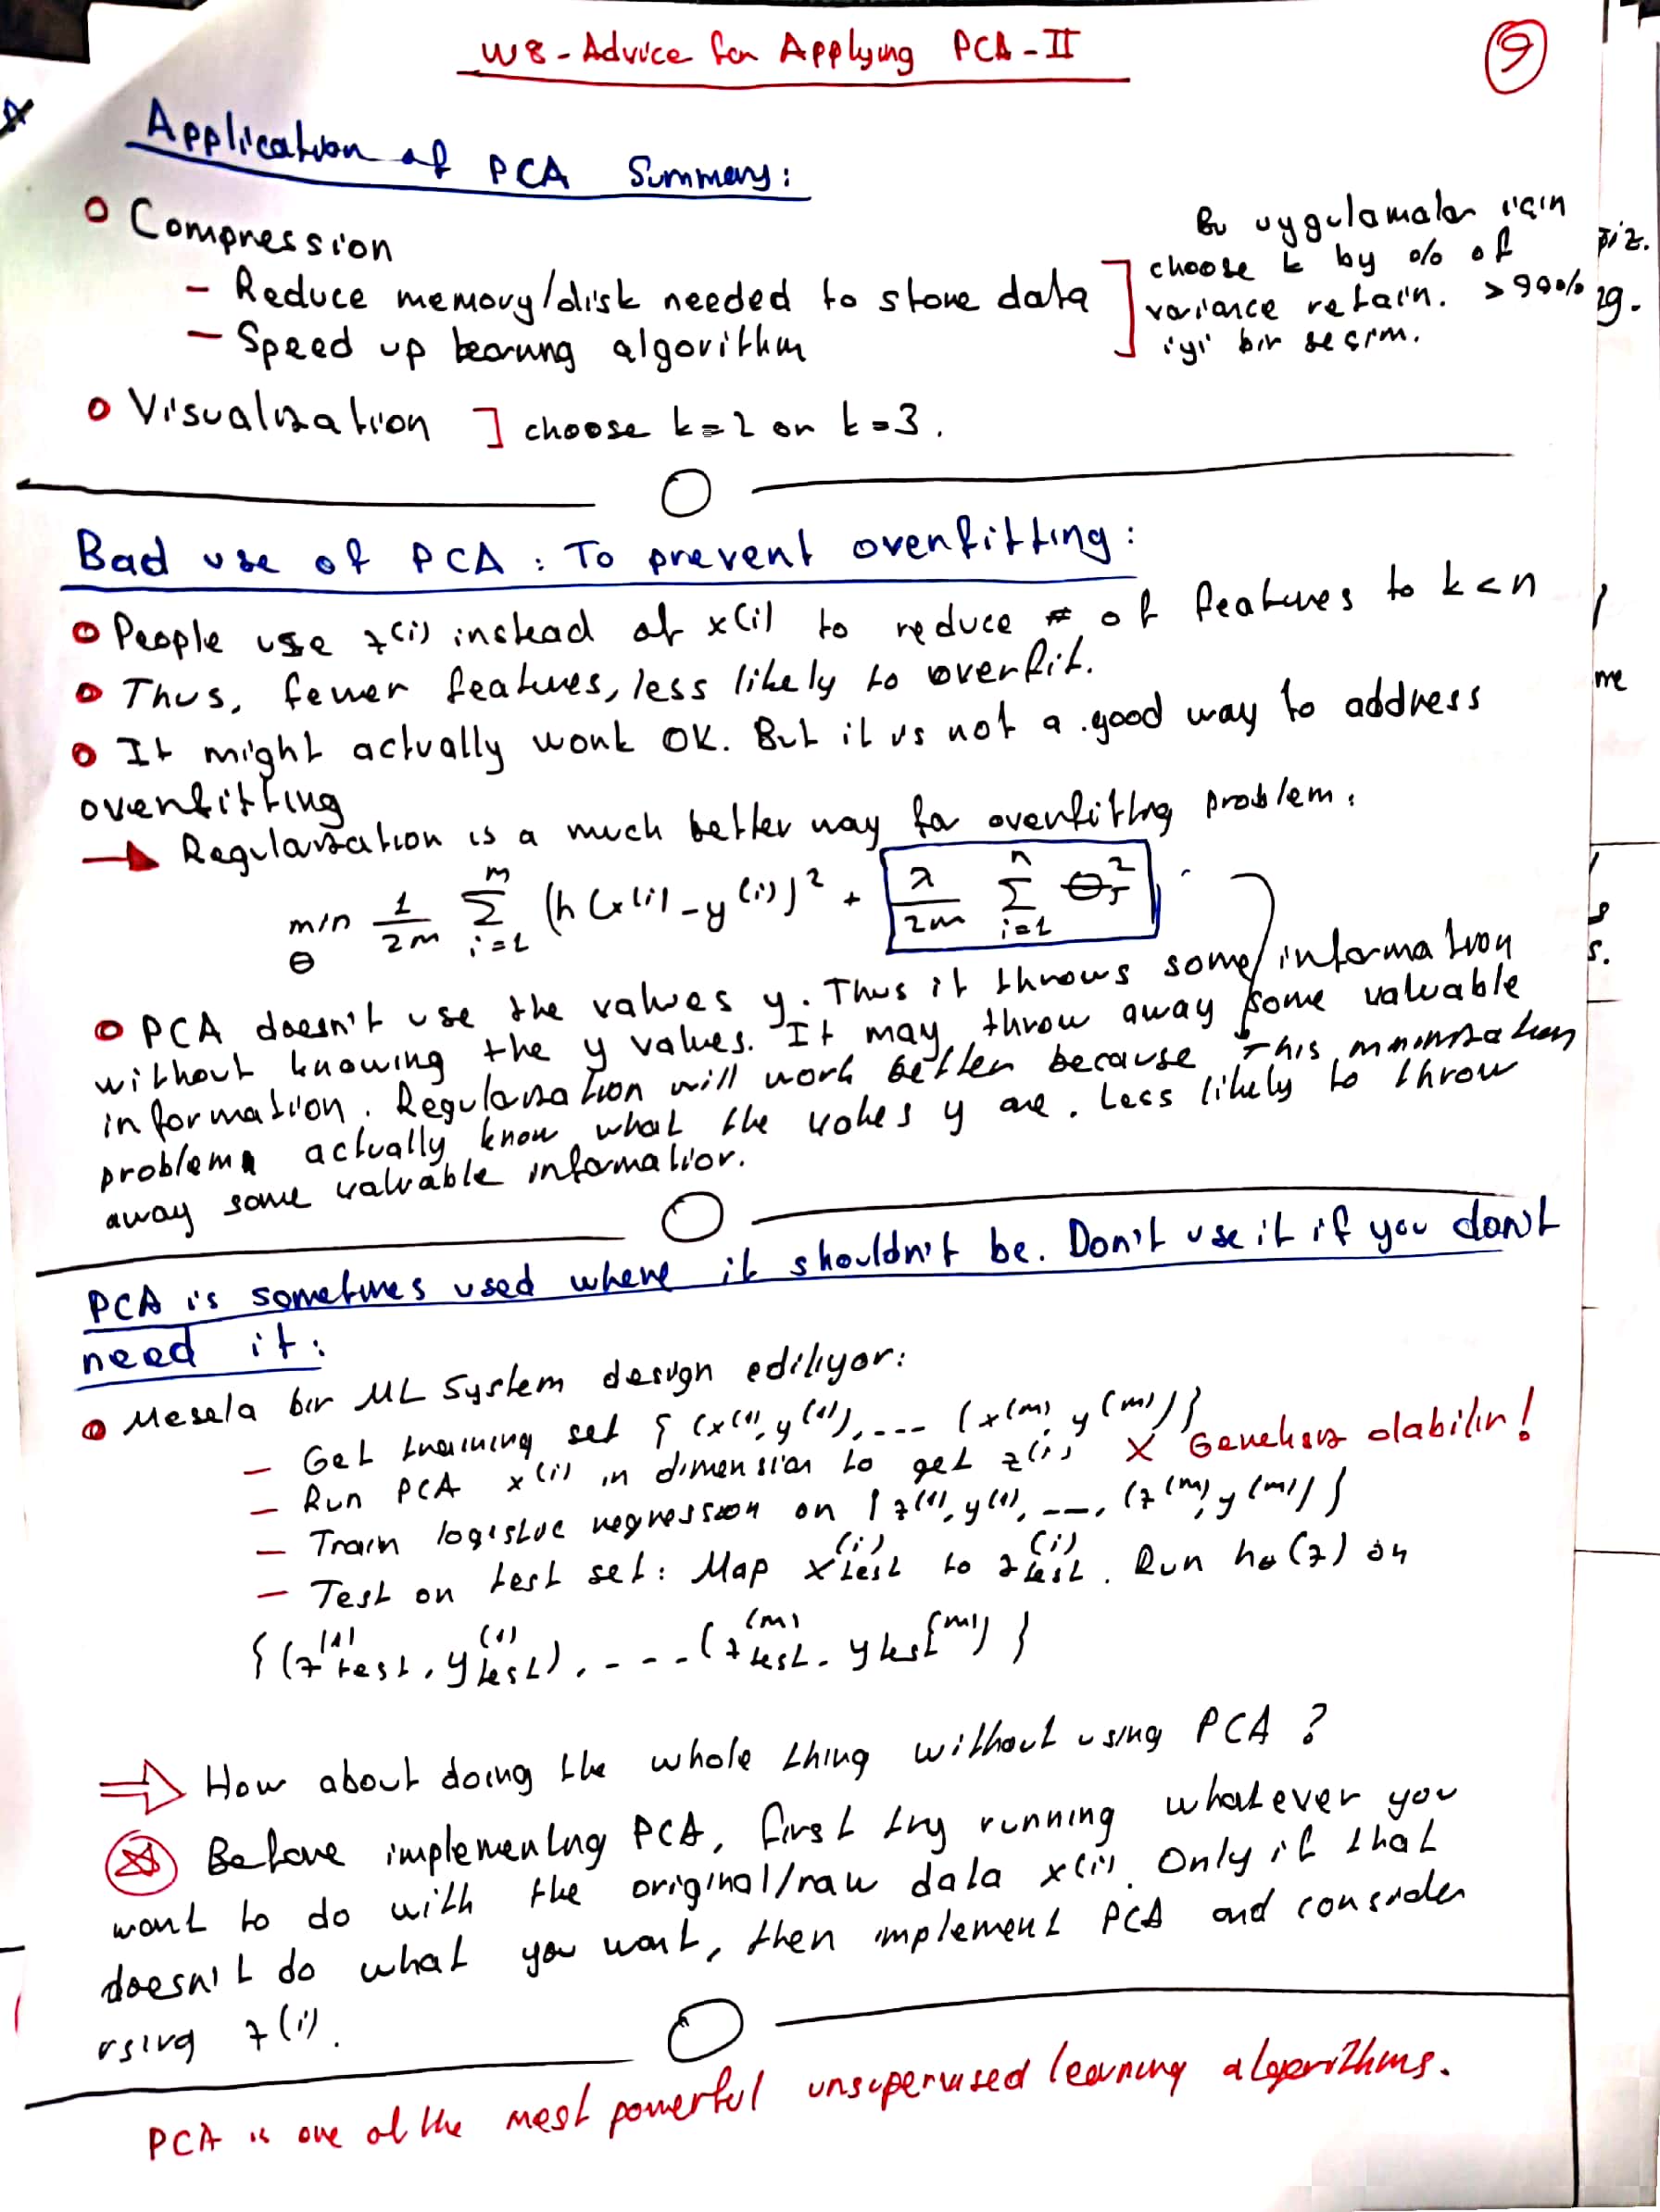 W8 - Advice for Applying PCA - II
9
Application of PCA Summary:
o Compression
- Reduce memory/disk needed to store data
- Speed up learning algorithm
Bu uygulamalar için
choose k by % of
variance retain. > 99%
iyi bir seçim.
o Visualization ] choose k=2 or k=3.
Bad use of PCA : To prevent overfitting:
o People use z(i) instead of x(i) to reduce # of features to k<n
o Thus, fewer features, less likely to overfit.
o It might actually work OK. But it is not a good way to address
overfitting
→ Regularization is a much better way for overfitting problem.
min θ 1/2m Σ i=1 m (h(x(i)) - y(i))² + λ/2m Σ i=1 n θj²
o PCA doesn't use the values y. Thus it throws some information
without knowing the y values. It may throw away some valuable
information. Regularization will work better because this minimization
problem actually know what the values y are. Less likely to throw
away some valuable information.
PCA is sometimes used where it shouldn't be. Don't use it if you don't
need it:
o Mesela bir ML System design ediliyor:
- Get training set {(x(1), y(1)), ... (x(m), y(m))}
- Run PCA x(i) in dimension to get z(i) X Gereksiz olabilir!
- Train logistic regression on {z(1), y(1), ..., (z(m), y(m))}
- Test on test set: Map x(i)test to z(i)test. Run hθ(z) on
{(z(1)test, y(1)test), ... (z(m)test, ytest(m))}
⇒ How about doing the whole thing without using PCA ?
Before implementing PCA, first try running whatever you
want to do with the original/raw data x(i). Only if that
doesn't do what you want, then implement PCA and consider
using z(i).
PCA is one of the most powerful unsupervised learning algorithms.
piz.
ng.
me
s.